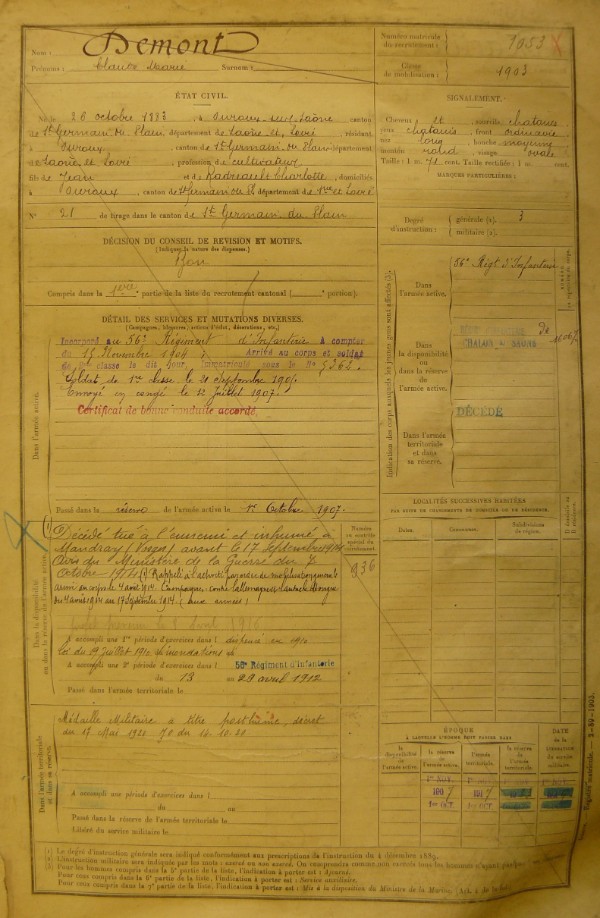 Nom : Demont
Prénoms : Claude Marie Surnom :
Numéro matricule du recrutement : 1053
Classe de mobilisation : 1903
ÉTAT CIVIL.
Né le 20 octobre 1883, à Ouroux sur Saône canton
de St Germain du Plain, département de Saône et Loire, résidant
à Ouroux, canton de St Germain du Plain département
Saône et Loire, profession de cultivateur
fils de Jean et de Charlotte, domiciliés
à Ouroux, canton de St Germain du Pl département de Sne et Loire
N° 21 de tirage dans le canton de St Germain du Plain
SIGNALEMENT.
Cheveux et sourcils châtains
yeux châtains, front ordinaire
nez long, bouche moyenne
menton rond, visage ovale
Taille : 1 m. 71 cent. Taille rectifiée : 1 m. cent.
MARQUES PARTICULIÈRES :
Degré d'instruction : générale (1). 3
militaire (2).
DÉCISION DU CONSEIL DE REVISION ET MOTIFS.
(Indiquer la nature des dispenses.)
Bon
Compris dans la 1ère partie de la liste du recrutement cantonal ( portion).
DÉTAIL DES SERVICES ET MUTATIONS DIVERSES.
(Campagnes, blessures, actions d'éclat, décorations, etc.)
Incorporé au 56e Régiment d'Infanterie à compter
du 15 Novembre 1904 Arrivé au corps et soldat
de 2e classe le dit jour Immatriculé sous le N° 5362
Soldat de 1re classe le 21 septembre 1905
Envoyé en congé le 12 Juillet 1907.
Certificat de bonne conduite accordé.
Passé dans la réserve de l'armée active le 1er Octobre 1907.
Dans l'armée active.
Indication des corps auxquels les jeunes gens sont affectés
Dans l'armée active.
56e Régt d'Infanterie
Dans la disponibilité ou dans la réserve de l'armée active.
CHALON s/ SAONE
DÉCÉDÉ
Dans l'armée territoriale et dans sa réserve.
LOCALITÉS SUCCESSIVES HABITÉES
PAR SUITE DE CHANGEMENTS DE DOMICILE OU DE RÉSIDENCE.
Dates. Communes. Subdivisions de région.
Dans la disponibilité ou dans la réserve de l'armée active.
Numéro au contrôle spécial du recrutement
936
Décédé tué à l'ennemi et inhumé à
Mandray (Vosges) avant le 17 septembre 1914
Avis du Ministère de la Guerre du
octobre 1914 (1) Rappelé à l'activité
armée au corps le 4 août 1914. Campagne contre l'Allemagne
du 4 août 1914 au 17 Septembre 1914 (aux armées)
A accompli une 1re période d'exercices dans l dispensé en 1910
loi du 29 juillet 1910 inondations
A accompli une 2e période d'exercices dans l 56e Régiment d'Infanterie
du 13 au 29 avril 1912
Passé dans l'armée territoriale le
Dans l'armée territoriale et dans sa réserve.
Médaille Militaire à titre posthume, décret
du 17 Mai 1920 JO du 14.10.20
A accompli une période d'exercices dans l
du au
Passé dans la réserve de l'armée territoriale le
Libéré du service militaire le
ÉPOQUE
À LAQUELLE L'HOMME DOIT PASSER DANS
la disponibilité de l'armée active.
la réserve de l'armée active.
l'armée territoriale.
la réserve de l'armée territoriale.
DATE de la libération du service militaire.
1907 1917
1er OCT 1er OCT
(1) Le degré d'instruction générale sera indiqué conformément aux prescriptions de l'instruction du 4 décembre 1889.
Pour les hommes compris dans la 5e partie de la liste, l'indication à porter est : Ajourné.
Pour ceux compris dans la 6e partie de la liste, l'indication à porter est : Service auxiliaire.
Pour ceux compris dans la 7e partie de la liste, l'indication à porter est : Mis à la disposition du Ministre de la Marine